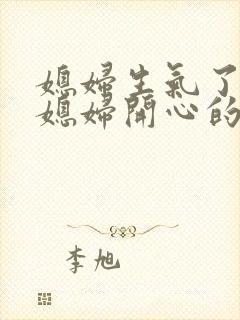 媳婦生氣了
媳婦開心的
李旭